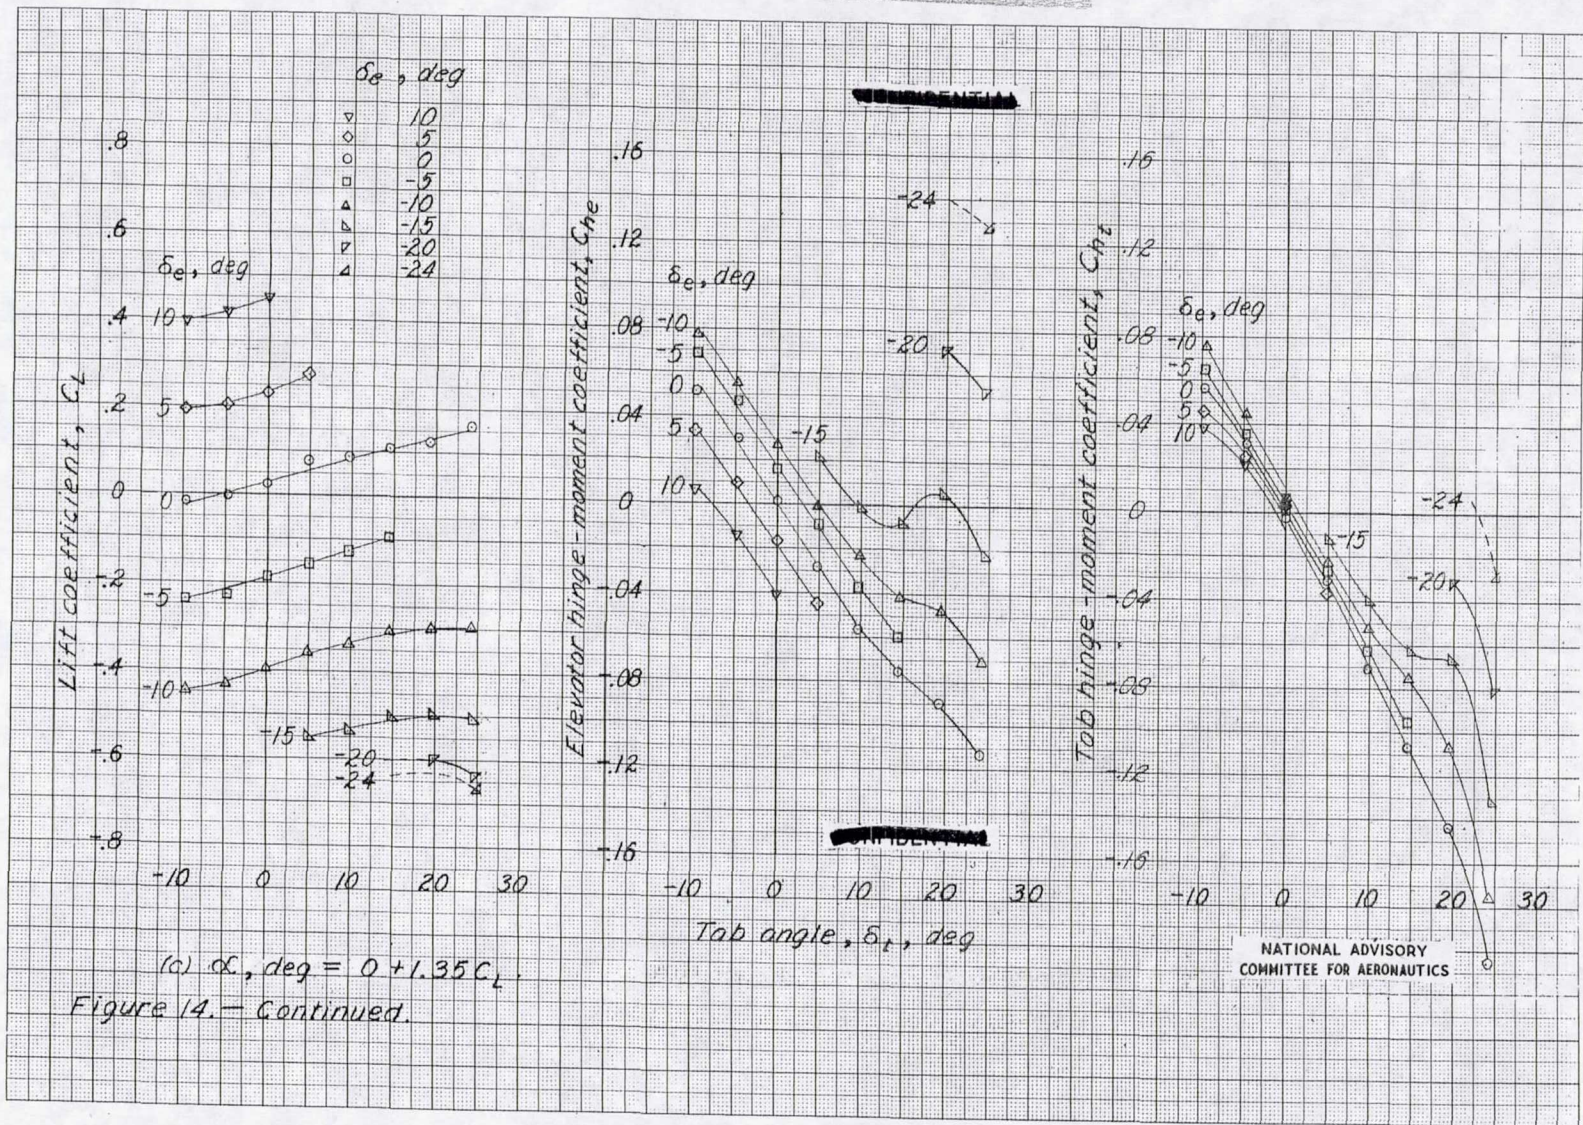 δe, deg
10
5
0
-5
-10
-15
-20
-24
Lift coefficient, CL
.8
.6
.4
.2
0
-.2
-.4
-.6
-.8
δe, deg
10
5
0
-5
-10
-15
-20
-24
-10 0 10 20 30
Elevator hinge-moment coefficient, Che
.16
.12
.08
.04
0
-.04
-.08
-.12
-.16
δe, deg
-10
-5
0
5
10
-15
-20
-24
-10 0 10 20 30
Tab angle, δt, deg
Tab hinge-moment coefficient, Cht
.16
.12
.08
.04
0
-.04
-.08
-.12
-.16
δe, deg
-10
-5
0
5
10
-15
-20
-24
-10 0 10 20 30
NATIONAL ADVISORY
COMMITTEE FOR AERONAUTICS
(c) α, deg = 0 + 1.35 CL.
Figure 14.— Continued.